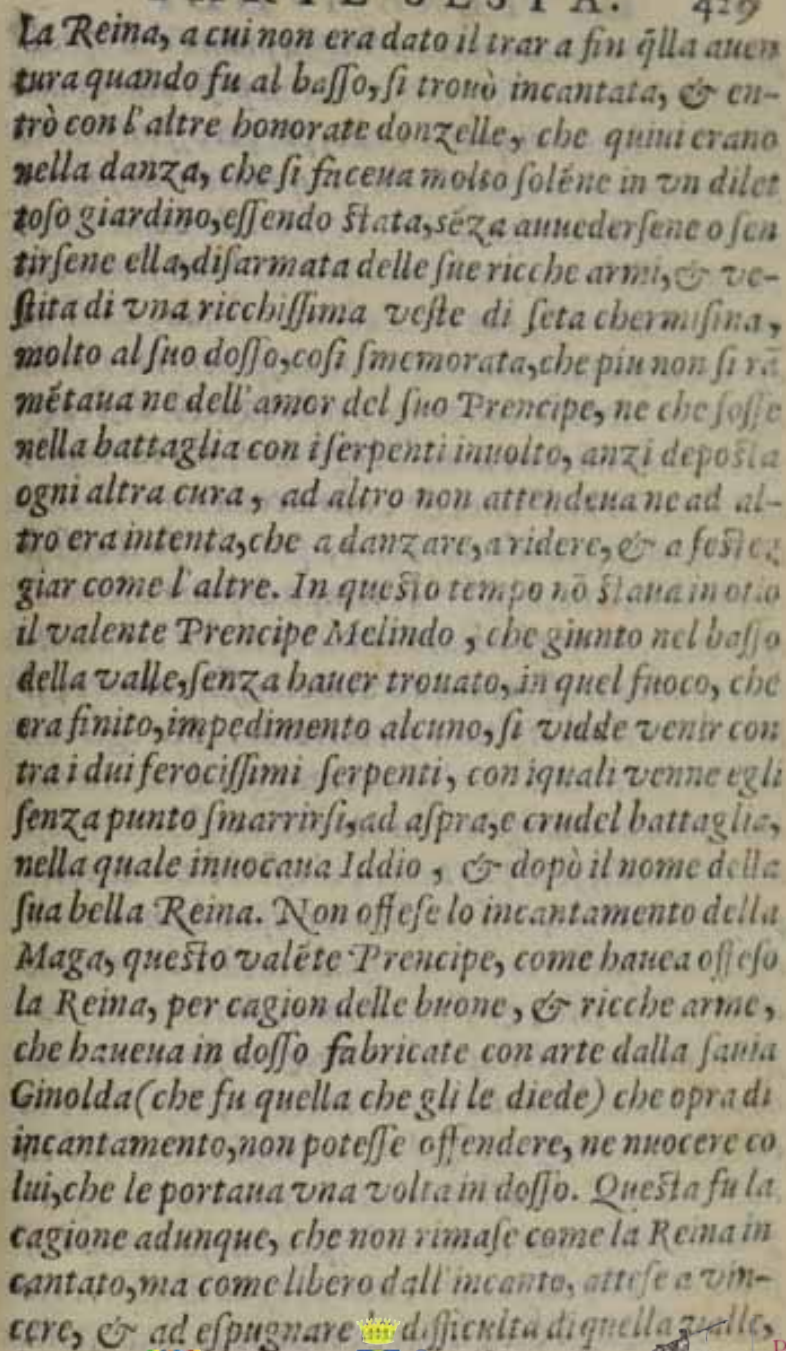 PARTE SESTA. 419
La Reina, a cui non era dato il trar a fin q̃lla auen
tura quando fu al baſſo, ſi trouò incantata, & en-
trò con l'altre honorate donzelle, che quiui erano
nella danza, che ſi faceua molto ſolẽne in vn dilet
toſo giardino, eſſendo ſtata, sẽza auuederſene o ſen
tirſene ella, diſarmata delle ſue ricche armi, & ve-
ſtita di vna ricchiſſima veſte di ſeta chermiſina,
molto al ſuo doſſo, coſi ſmemorata, che piu non ſi rã
mẽtaua ne dell'amor del ſuo Prencipe, ne che foſſe
nella battaglia con i ſerpenti inuolto, anzi depoſta
ogni altra cura, ad altro non attendeua ne ad al-
tro era intenta, che a danzare, a ridere, & a feſteg
giar come l'altre. In queſto tempo nõ ſtaua in otio
il valente Prencipe Melindo, che giunto nel baſſo
della valle, ſenza hauer trouato, in quel fuoco, che
era finito, impedimento alcuno, ſi vidde venir con
tra i dui ferociſſimi ſerpenti, con iquali venne egli
ſenza punto ſmarrirſi, ad aſpra, e crudel battaglia,
nella quale inuocaua Iddio, & dopò il nome della
ſua bella Reina. Non offeſe lo incantamento della
Maga, queſto valẽte Prencipe, come hauea offeſo
la Reina, per cagion delle buone, & ricche arme,
che haueua in doſſo fabricate con arte dalla ſauia
Ginolda (che fu quella che gli le diede) che opra di
incantamento, non poteſſe offendere, ne nuocere co
lui, che le portaua vna volta in doſſo. Queſta fu la
cagione adunque, che non rimaſe come la Reina in
cantato, ma come libero dall'incanto, atteſe a vin-
cere, & ad eſpugnare le difficultà di quella valle,